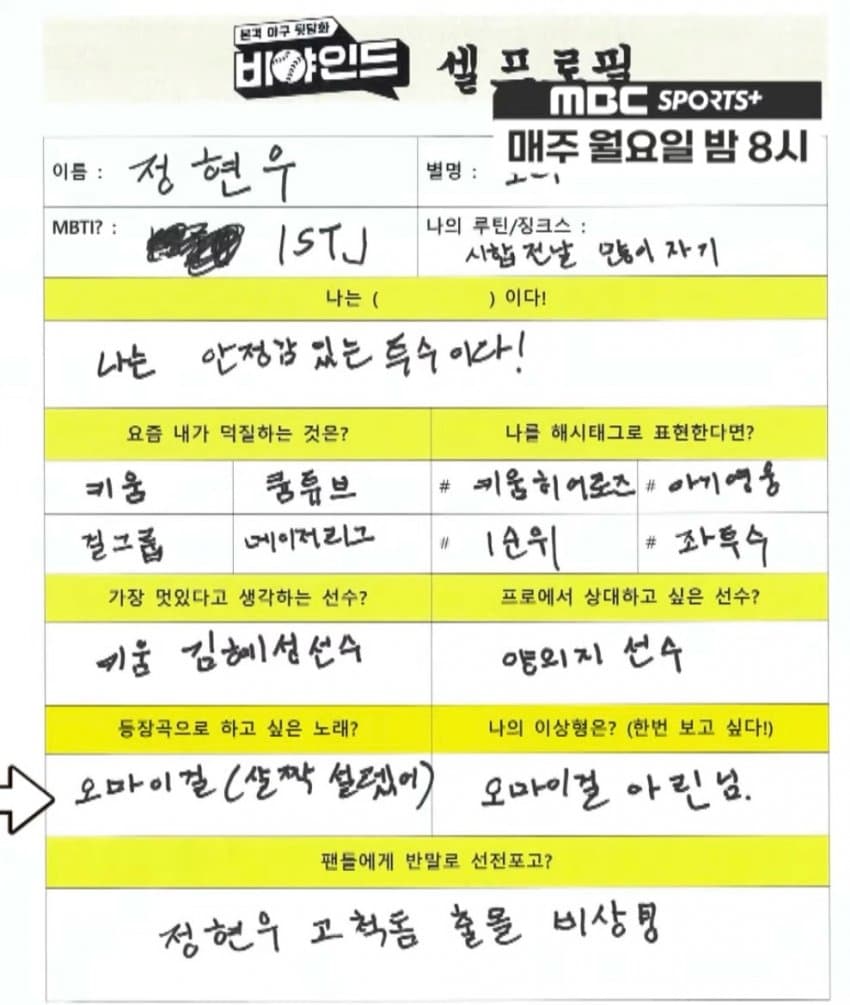 본격 야구 뒷담화
비야인드 셀프로필
MBC SPORTS+
매주 월요일 밤 8시
이름 : 정현우 별명 :
MBTI? : ISTJ 나의 루틴/징크스 : 시합 전날 많이 자기
나는 ( ) 이다!
나는 안정감 있는 투수이다!
요즘 내가 덕질하는 것은? 나를 해시태그로 표현한다면?
키움 쿰튜브 # 키움히어로즈 # 아기영웅
걸그룹 메이저리그 # 1순위 # 좌투수
가장 멋있다고 생각하는 선수? 프로에서 상대하고 싶은 선수?
키움 김혜성선수 양의지 선수
등장곡으로 하고 싶은 노래? 나의 이상형은? (한번 보고 싶다!)
오마이걸 (살짝 설렜어) 오마이걸 아린님.
팬들에게 반말로 선전포고?
정현우 고척돔 출몰 비상령